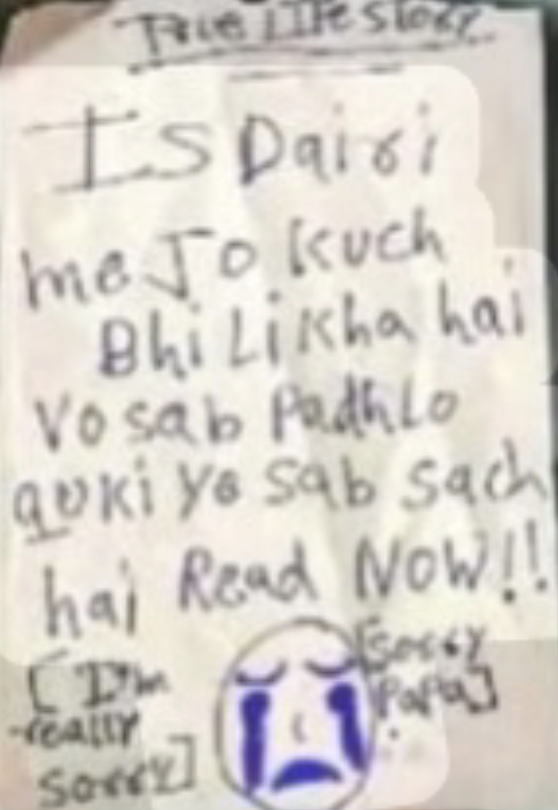 True life story
Is Dairi
me Jo kuch
Bhi Likha hai
Vo sab Padhlo
quki ye sab sach
hai Read NOW!!
[I'm
really
sorry]
[sorry
Papa]